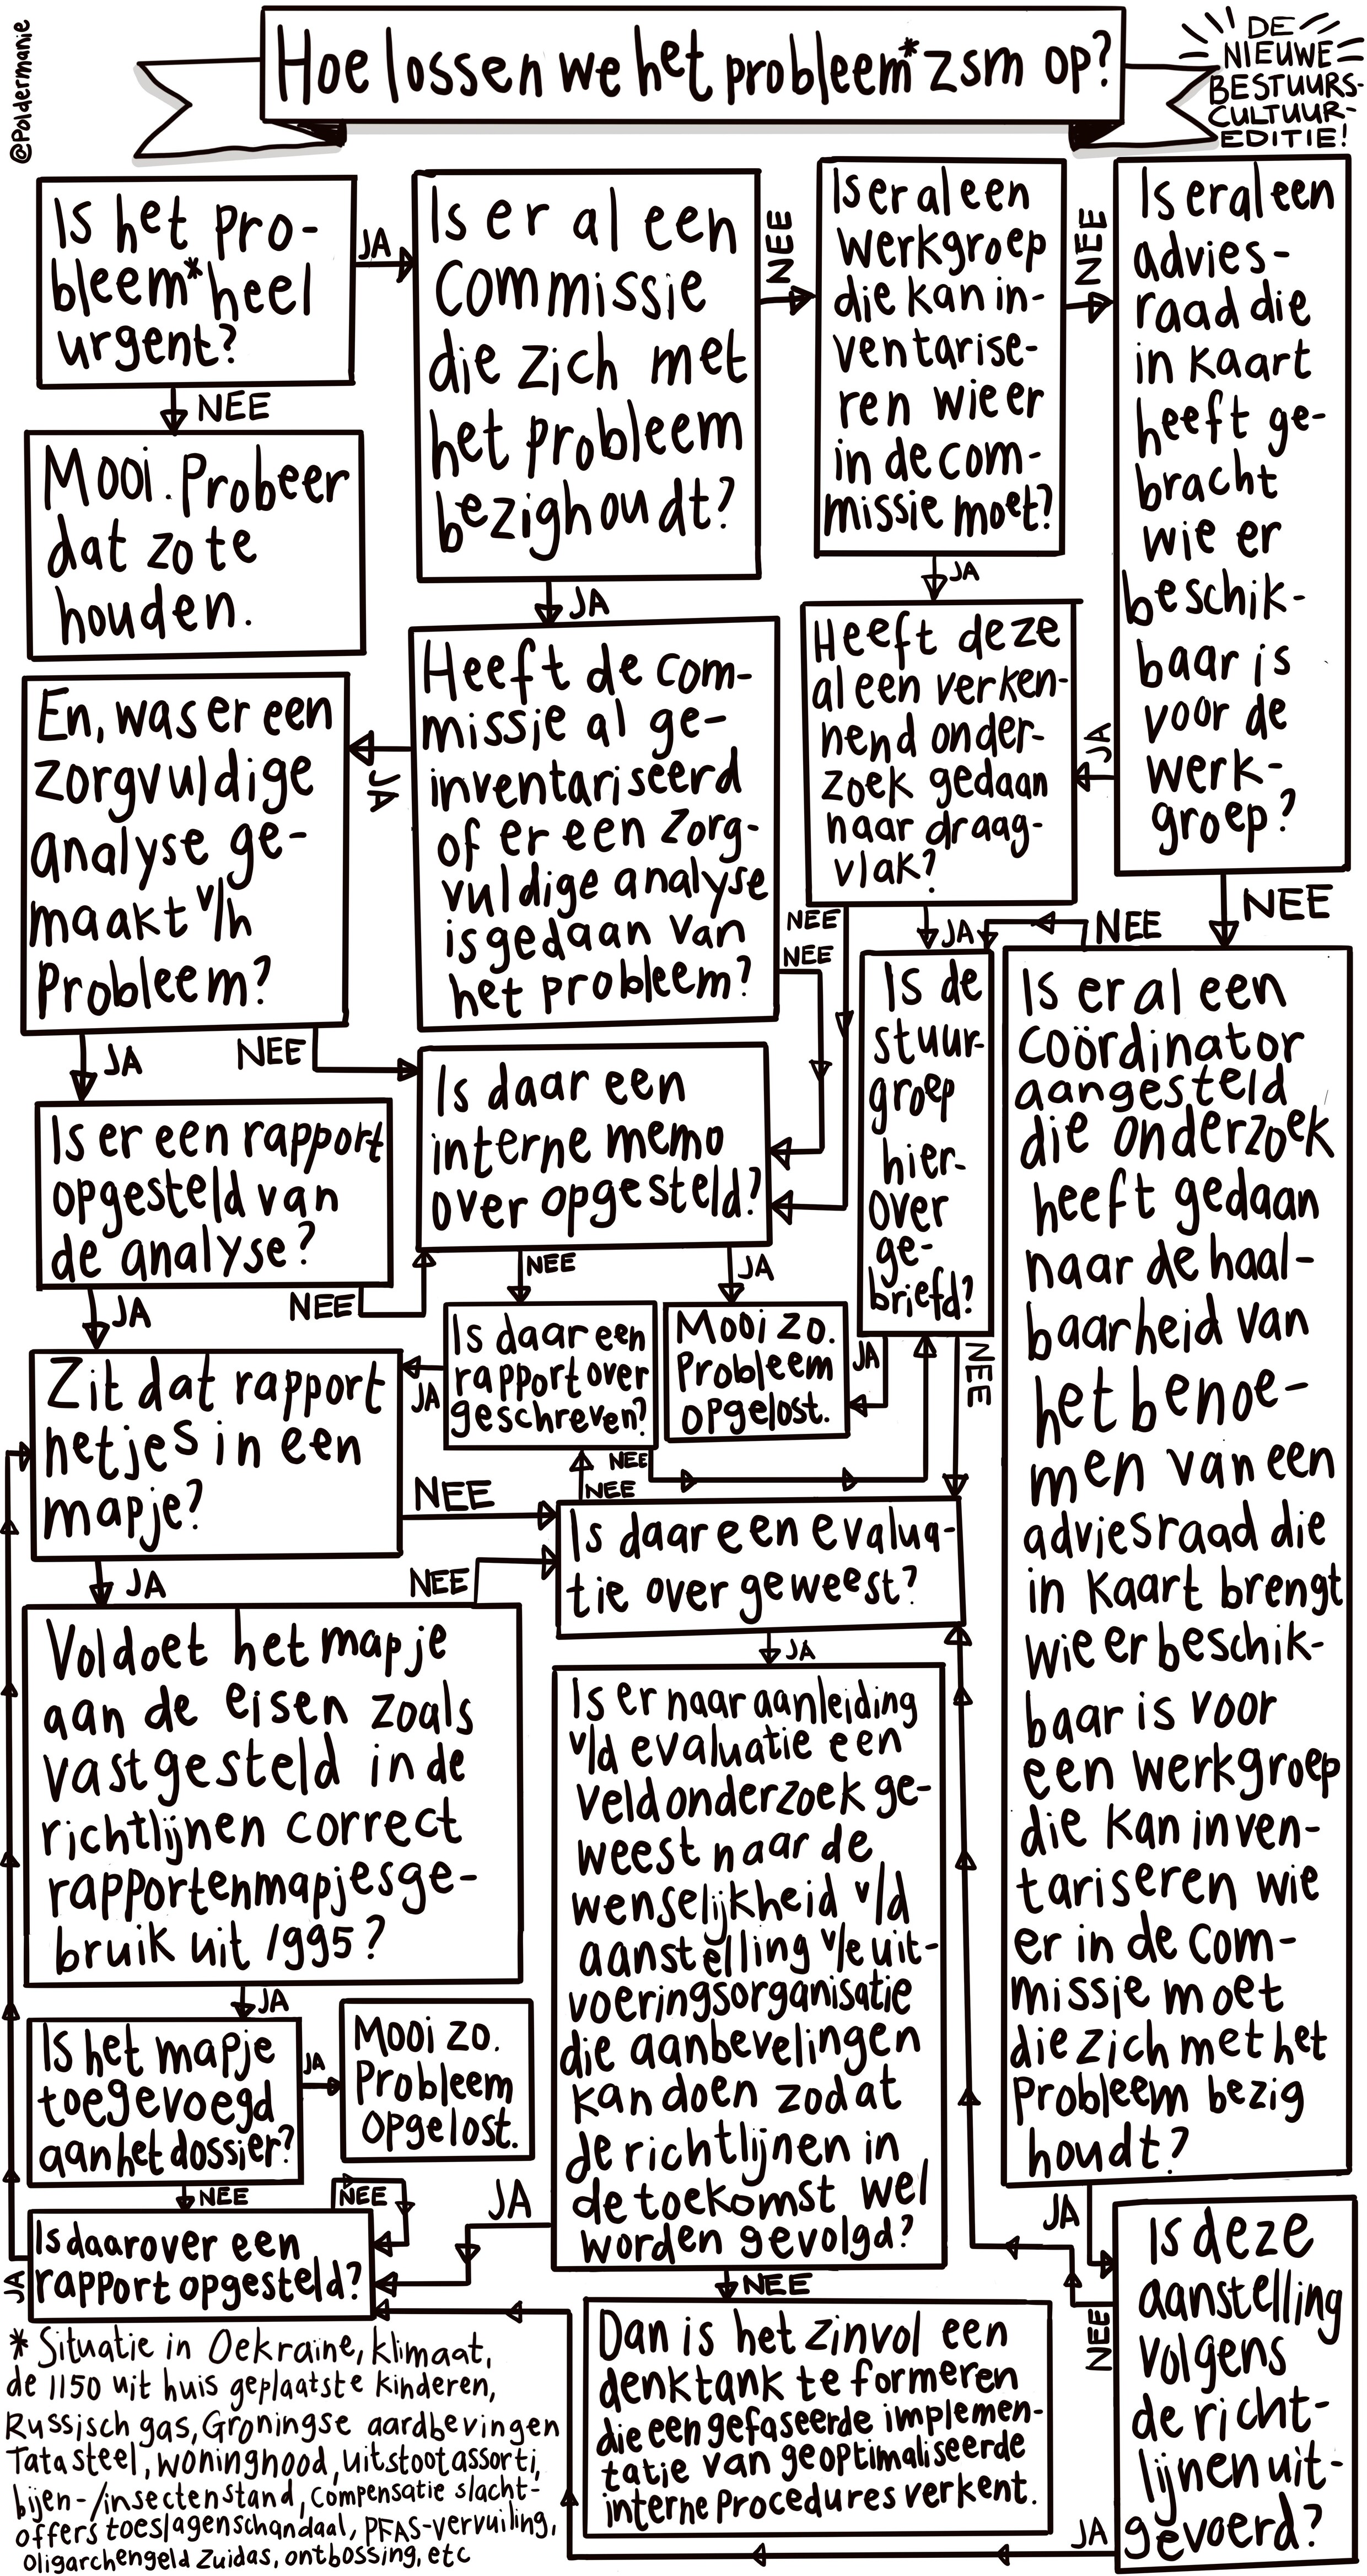 @Poldermanie
Hoe lossen we het probleem* zsm op?
DE
NIEUWE
BESTUURS-
CULTUUR-
EDITIE!
Is het pro-
bleem* heel
urgent?
JA
NEE
Mooi. Probeer
dat zo te
houden.
Is er al een
commissie
die zich met
het probleem
bezighoudt?
NEE
JA
Is er al een
werkgroep
die kan in-
ventarise-
ren wie er
in de com-
missie moet?
NEE
JA
Is er al een
advies-
raad die
in kaart
heeft ge-
bracht
wie er
beschik-
baar is
voor de
werk-
groep?
JA
NEE
Heeft deze
al een verken-
nend onder-
zoek gedaan
naar draag-
vlak?
NEE
JA
Heeft de com-
missie al ge-
inventariseerd
of er een zorg-
vuldige analyse
is gedaan van
het probleem?
JA
NEE
En, was er een
zorgvuldige
analyse ge-
maakt v/h
probleem?
JA
NEE
Is er een rapport
opgesteld van
de analyse?
JA
NEE
Is daar een
interne memo
over opgesteld?
NEE
JA
Is de
stuur-
groep
hier-
over
ge-
briefd?
JA
NEE
Is er al een
coördinator
aangesteld
die onderzoek
heeft gedaan
naar de haal-
baarheid van
het benoe-
men van een
adviesraad die
in kaart brengt
wie er beschik-
baar is voor
een werkgroep
die kan inven-
tariseren wie
er in de com-
missie moet
die zich met het
probleem bezig
houdt?
NEE
JA
Is daar een
rapport over
geschreven?
JA
NEE
Mooi zo.
Probleem
opgelost.
Zit dat rapport
netjes in een
mapje?
NEE
JA
Is daar een evalua-
tie over geweest?
NEE
JA
Voldoet het mapje
aan de eisen zoals
vastgesteld in de
richtlijnen correct
rapportenmapjesge-
bruik uit 1995?
NEE
JA
Is er naar aanleiding
v/d evaluatie een
veldonderzoek ge-
weest naar de
wenselijkheid v/d
aanstelling v/e uit-
voeringsorganisatie
die aanbevelingen
kan doen zodat
de richtlijnen in
de toekomst wel
worden gevolgd?
JA
NEE
Is het mapje
toegevoegd
aan het dossier?
JA
NEE
Mooi zo.
Probleem
opgelost.
Is daarover een
rapport opgesteld?
NEE
JA
Dan is het zinvol een
denktank te formeren
die een gefaseerde implemen-
tatie van geoptimaliseerde
interne procedures verkent.
Is deze
aanstelling
volgens
de richt-
lijnen uit-
gevoerd?
NEE
JA
* Situatie in Oekraine, klimaat,
de 1150 uit huis geplaatste kinderen,
Russisch gas, Groningse aardbevingen
Tata steel, woningnood, uitstoot assorti,
bijen-/insectenstand, compensatie slacht-
offers toeslagenschandaal, PFAS-vervuiling,
oligarchengeld Zuidas, ontbossing, etc